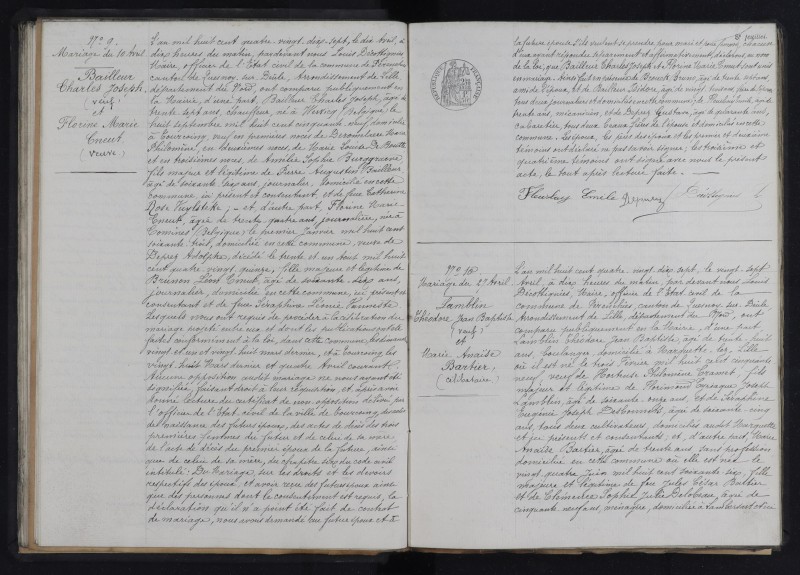 N° 9.
Mariage du 10 Avril
Bailleur
Charles Joseph,
(veuf)
et
Florine Marie
Cneut
(veuve)
L'an mil huit cent quatre-vingt-dix-sept, le dix Avril, à
dix heures du matin, pardevant nous Louis
Maire, officier de l'Etat civil de la commune de
canton de Quesnoy-sur-Deûle, Arrondissement de Lille,
département du Nord, ont comparu publiquement en
la Mairie, d'une part, Bailleur Charles Joseph, âgé de
trente sept ans, chauffeur, né à (Belgique) le
huit septembre mil huit cent cinquante neuf, domicilié
à Tourcoing, veuf en premières noces de
Philomène, en deuxièmes noces, de Marie Louise
et en troisièmes noces, de Amélie Sophie
fils majeur et légitime de Pierre Augustin Bailleur
âgé de soixante ans, journalier, domicilié en cette
commune, ici présent et consentant, et de feue Catherine
Rose ; et d'autre part, Florine Marie
Cneut, âgée de trente quatre ans, journalière, née à
Comines (Belgique) le premier Janvier mil huit cent
soixante trois, domiciliée en cette commune, veuve de
Deprez Adolphe, décédé le trente et un Août mil huit
cent quatre vingt quinze, fille majeure et légitime de
Léon Cneut, âgé de soixante dix ans,
journalier, domicilié en cette commune, ici présent et
consentant et de feue Séraphine Léonie
Lesquels nous ont requis de procéder à la célébration du
mariage projeté entre eux, et dont les publications ont été
faites conformément à la loi, dans cette commune, les dimanches
vingt et un et vingt huit mars dernier, et à Tourcoing les
vingt huit Mars dernier et quatre Avril courant.
Aucune opposition audit mariage ne nous ayant été
signifiée, faisant droit à leur réquisition, et après avoir
donné lecture du certificat de non opposition délivré par
l'officier de l'Etat civil de la ville de Tourcoing, des actes
de naissance des futurs époux, des actes de décès des trois
premières femmes du futur et de celui de sa mère,
de l'acte de décès du premier époux de la future, ainsi
que de celui de sa mère, du chapitre six du code civil
intitulé: Du Mariage, sur les droits et les devoirs
respectifs des époux, et avoir reçu des futurs époux ainsi
que des personnes dont le consentement est requis, la
déclaration qu'il n'a point été fait de contrat
de mariage, nous avons demandé au futur époux et à
la future épouse s'ils veulent se prendre pour mari et pour femme, chacun
d'eux ayant répondu séparément et affirmativement, déclarons, au nom
de la loi, que Bailleur Charles Joseph et Florine Marie Cneut sont unis
en mariage. Ainsi fait en présence de
ami de l'époux, et de Bailleur Isidore, âgé de vingt
tous deux journaliers et domiciliés en cette commune, de
trente ans, mécanicien, et de Deprez Gustave, âgé de quarante ans,
cabaretier, tous deux de l'épouse et domiciliés en cette
commune. Les époux, les père des époux et les premier et deuxième
témoins ont déclaré ne pas savoir signer; les troisième et
quatrième témoins ont signé avec nous le présent
acte, le tout après lecture faite.
Emile
N° 10.
Mariage du 27 Avril.
Lamblin
Théodore Jean Baptiste
(veuf)
et
Marie Anaïse
Barbier,
(célibataire)
L'an mil huit cent quatre-vingt-dix-sept, le vingt-sept
Avril, à dix heures du matin, par devant nous Louis
Maire, officier de l'Etat civil de la
commune de canton de Quesnoy-sur-Deûle
Arrondissement de Lille, département du Nord, ont
comparu publiquement en la Mairie, d'une part,
Lamblin Théodore Jean Baptiste, âgé de trente huit
ans, boulanger, domicilié à Marquette-lez-Lille
où il est né le trois Février mil huit cent cinquante
neuf, veuf de Hortense Philomène fils
majeur et légitime de Joseph
Lamblin, âgé de soixante onze ans, et de Séraphine
Eugénie Joseph âgée de soixante cinq
ans, tous deux cultivateurs, domiciliés audit Marquette
et ici présents et consentants; et, d'autre part, Marie
Anaïse Barbier, âgée de trente ans, sans profession
domiciliée en cette commune où elle est née le
vingt quatre Juin mil huit cent soixante six, fille
majeure et légitime de feu Jules César Barbier
et de Clémence Sophie Julie âgée de
cinquante neuf ans, ménagère, domiciliée à